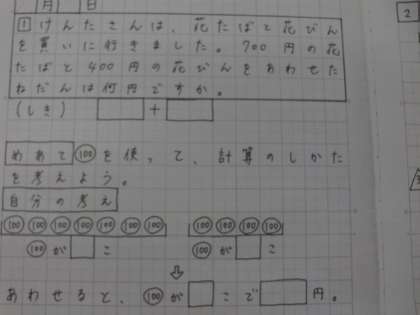 月 日
1 けんたさんは、花たばと花びん
を買いに行きました。700円の花
たばと400円の花びんをあわせた
ねだんは何円ですか。
(しき) +
めあて 100を使って、計算のしかた
を考えよう。
自分の考え
100 100 100 100 100 100 100 100 100 100 100
100が こ 100が こ
あわせると、100が こで 円。
2